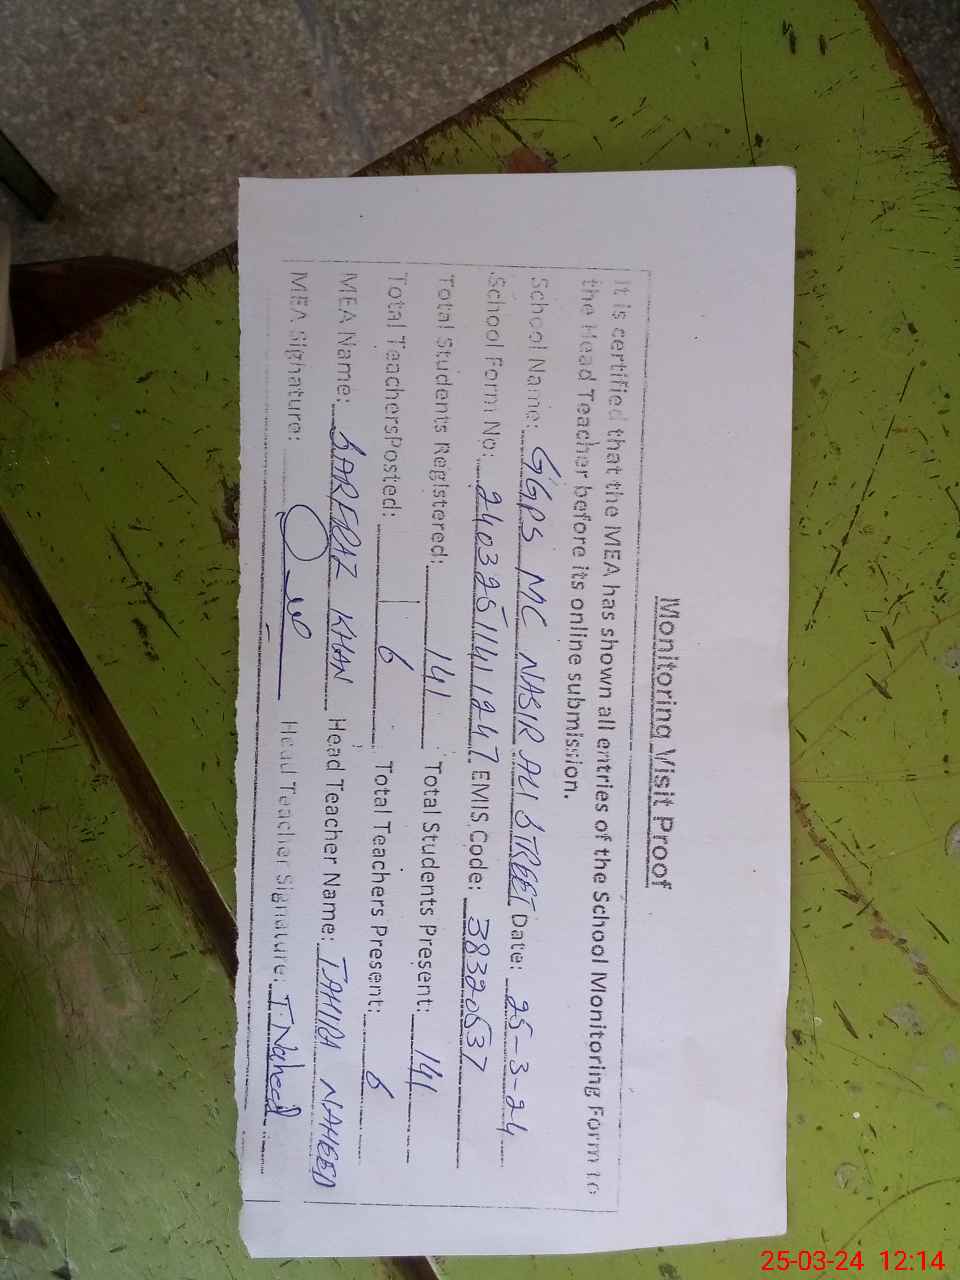 Monitoring Visit Proof
It is certified that the MEA has shown all entries of the School Monitoring Form to
the Head Teacher before its online submission.
School Name: GGPS MC NASIR ALI STREET Date: 25-3-24
School Form No: 2403251141247 EMIS Code: 38320537
Total Students Registered: 141 Total Students Present: 141
Total TeachersPosted: 6 Total Teachers Present: 6
MEA Name: SARFRAZ KHAN Head Teacher Name: TAHIRA NAHEED
MEA Signature: Head Teacher Signature: T. Naheed
25-03-24 12:14